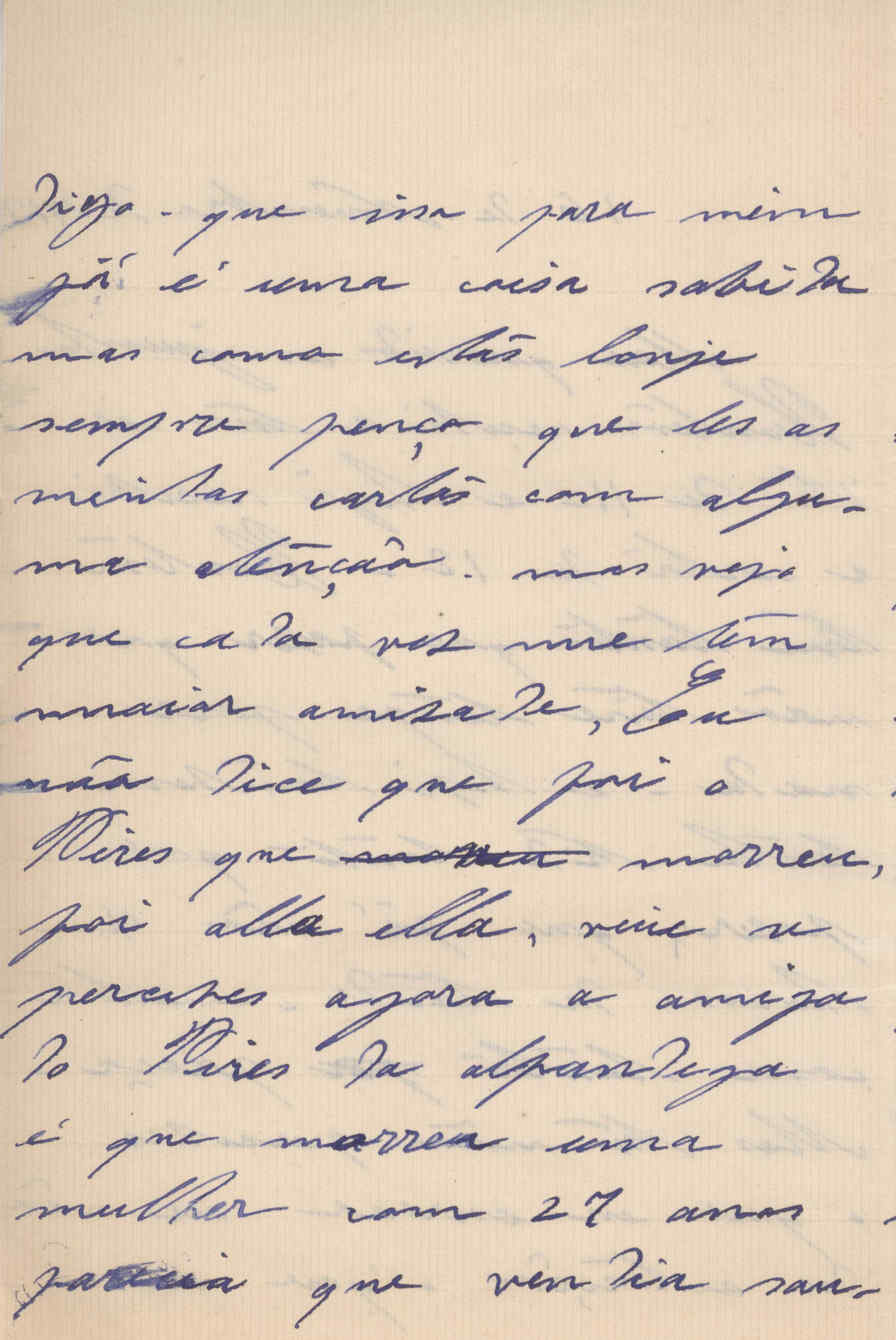 Digo - que isso para mim
já é uma coisa sabida
mas como estás lonje
sempre penço que les as
minhas cartas com algu-
ma atênção. mas vejo
que cada vez me têm
maiar amisade, Eu
não dice que foi o
Pires que morreu,
foi alla ella, veie se
percebes agora a amiga
do Pires da alfandega
é que morreu uma
mulher com 27 anos
parecia que vendia sau-